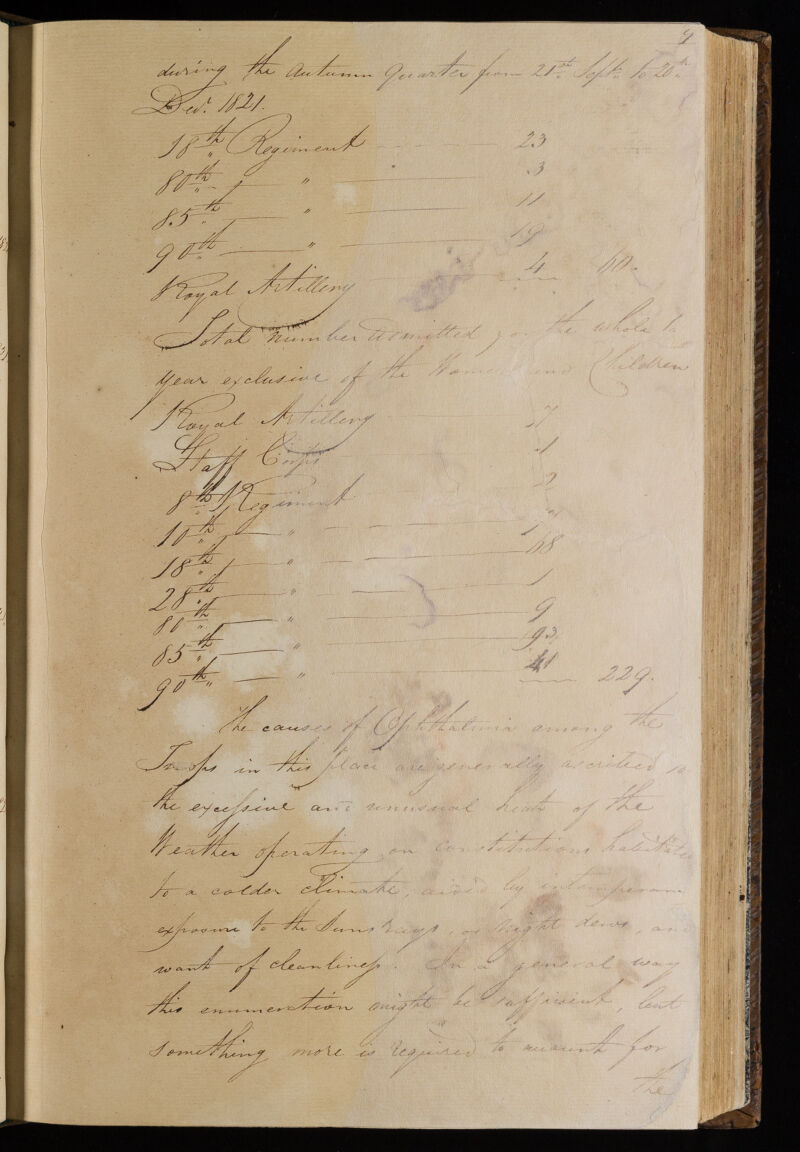 9
during the Autumn Quarter from 21st Septr to 20th
Decr 1821.
18th Regiment 23
80th " 3
85th " 11
90th " 19
Royal Artillery 4 60.
Total number admitted for the whole
year exclusive of the Women and Children
Royal Artillery 7
Staff Corps 1
8th Regiment 2
10th "
18th " 68
28th " 1
80th " 9
85th " 93
90th " 41 229.
The causes of Ophthalmia among the
Troops in this place are generally ascribed to
the excessive and unusual heat of the
Weather operating on constitutions habituated
to a colder climate, aided by intemperance
exposure to the Suns rays, or night dews, and
want of cleanliness. In a general way
this enumeration might be sufficient, but
something more is required to account for
the